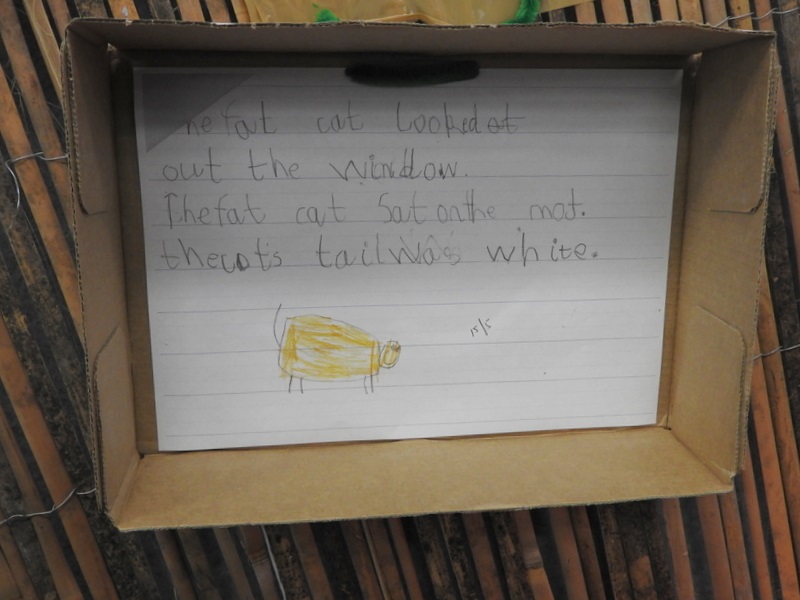 he fat cat looked at
out the window.
The fat cat Sat on the mat.
the cat's tail Was white.
15/5